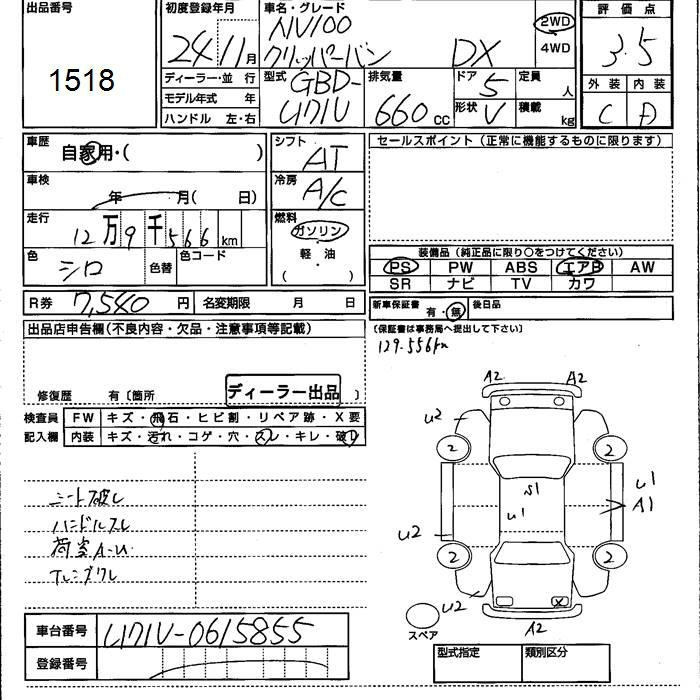 出品番号
1518
初度登録年月
24 11月
ディーラー・並 行
モデル年式 年
ハンドル 左・右
車名・グレード
NV100
クリッパーバン DX
2WD
4WD
型式
GBD-
U71V
排気量
660 cc
ドア 5
形状 V
定員 人
積載 kg
評 価 点
3.5
外 装 内 装
C D
車歴
自家用・( )
車検
年 月( 日)
走行
12万9千566 km
色
シロ
色替
色コード
シフト
AT
冷房
A/C
燃料
ガソリン
・
軽・油
( )
セールスポイント (正常に機能するものに限ります)
装備品 (純正品に限り○をつけてください)
PS PW ABS エアB AW
SR ナビ TV カワ
R券 7,540 円 名変期限 月 日
新車保証書 有・無 後日品
(保証書は事務局へ提出して下さい)
出品店申告欄(不良内容・欠品・注意事項等記載)
修復歴 有〔箇所 〕
ディーラー出品
検査員
記入欄
FW キズ・飛石・ヒビ割・リペア跡・X要
内装 キズ・汚れ・コゲ・穴・スレ・キレ・破レ
シート破レ
ハンドルスレ
荷室A-U
129.556km
A2 A2
U2
2 2
S1
U1
U1
A1
U2
2 2
U2
X
A2
スペア
車台番号 U71V-0615855
登録番号
型式指定 類別区分